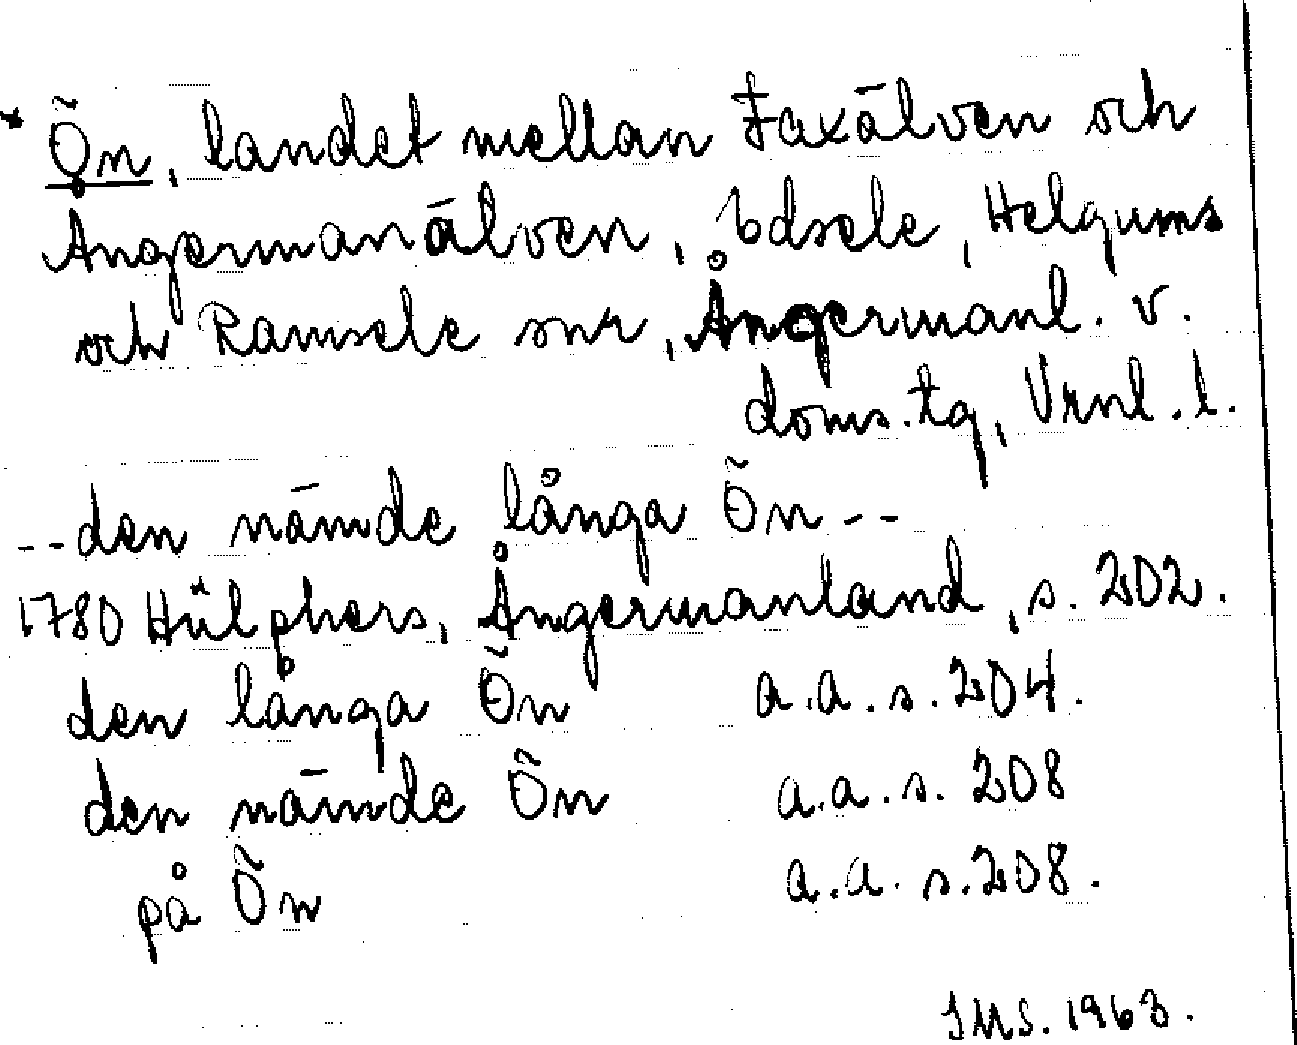 * Ön, landet mellan Faxälven och
Ångermanälven, Edsele, Helgums
och Ramsele snr, Ångermanl. v.
doms.tg, Vrnl. l.
-- den nämde långa Ön --
1780 Hülphers, Ångermanland, s. 202.
den långa Ön a.a. s. 204.
den nämde Ön a.a. s. 208
på Ön a.a. s. 208.
IMS. 1963.